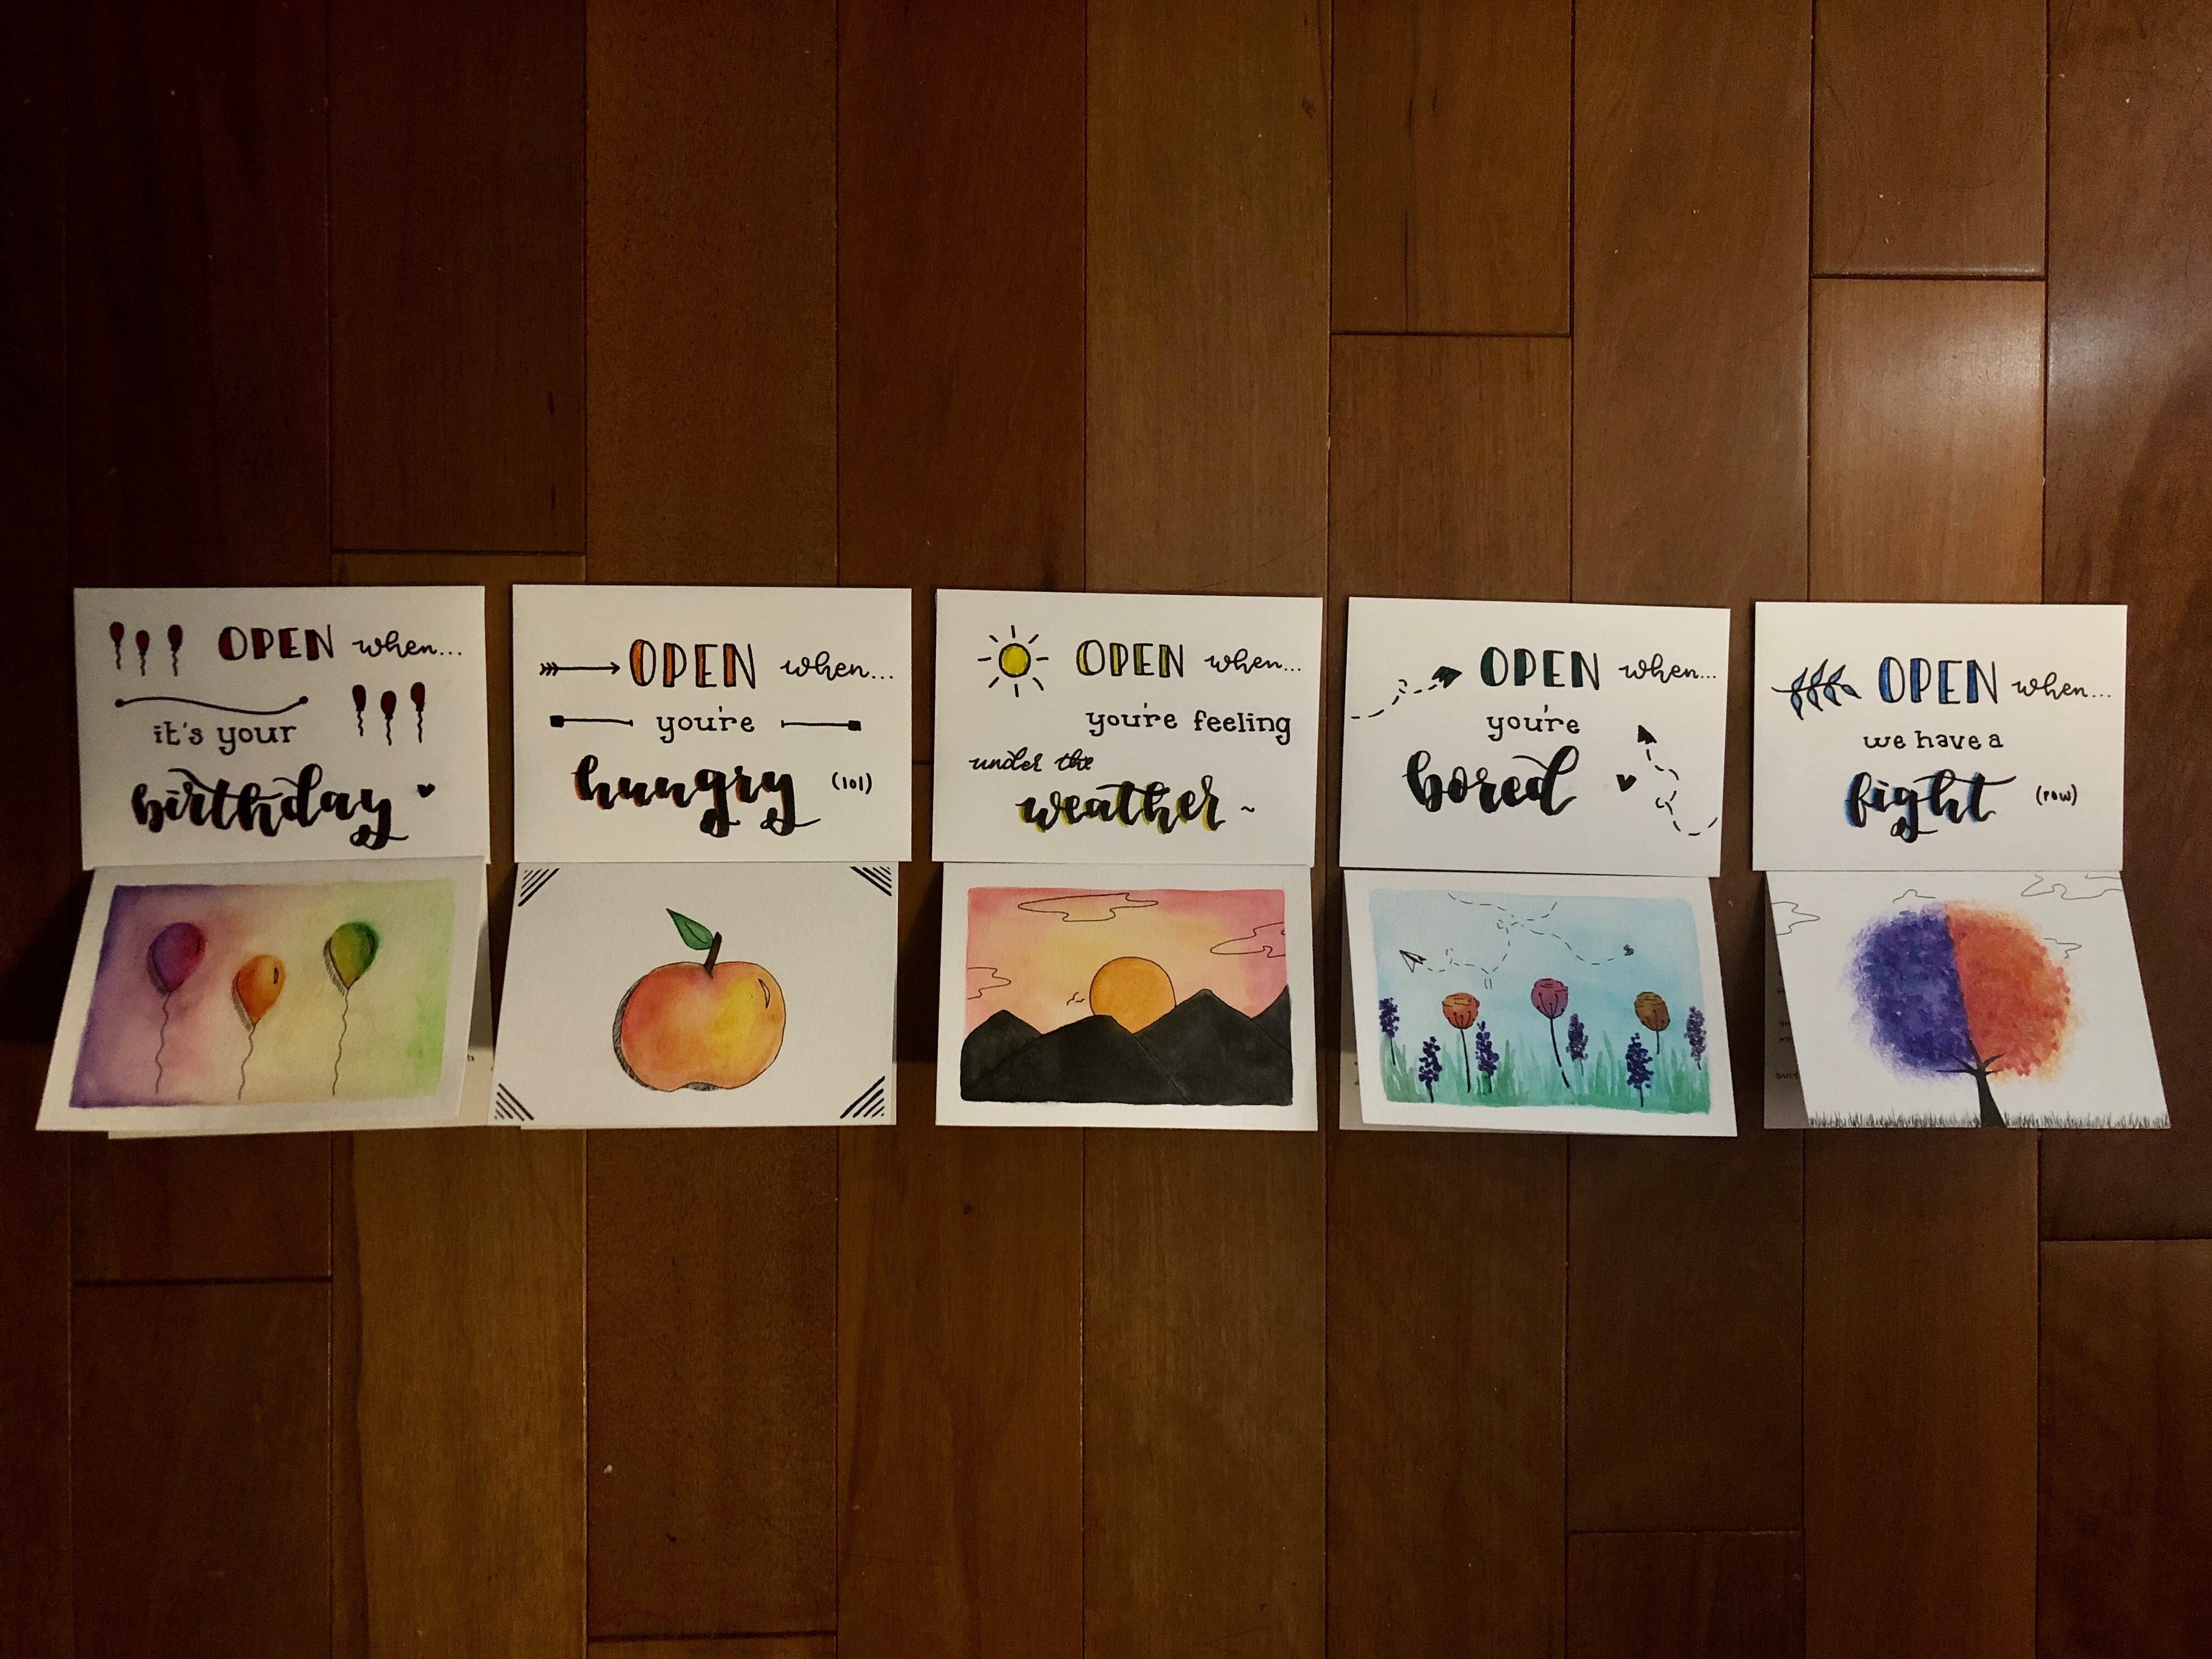 OPEN when...
it's your
birthday
OPEN when...
you're
hungry (lol)
OPEN when...
you're feeling
under the
weather ~
OPEN when...
you're
bored
OPEN when...
we have a
fight (row)